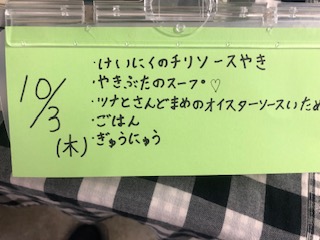 10/3
(木)
・けいにくのチリソースやき
・やきぶたのスープ♡
・ツナとさんどまめのオイスターソースいため
・ごはん
・ぎゅうにゅう